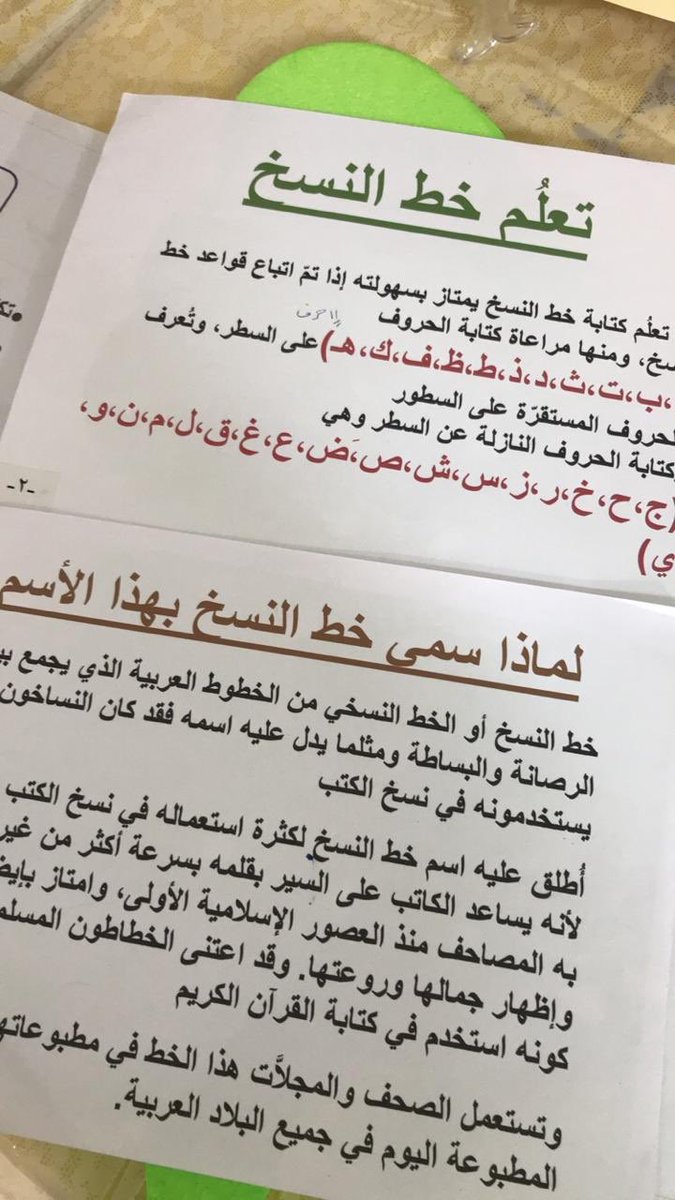 تعلُم خط النسخ
تعلُم كتابة خط النسخ يمتاز بسهولته إذا تمّ اتباع قواعد خط
سخ، ومنها مراعاة كتابة الحروف
،ب،ت،ث،د،ذ،ط،ظ،ف،ك،هـ)على السطر، وتُعرف
لحروف المستقرّة على السطور
كتابة الحروف النازلة عن السطر وهي
(ج،ح،خ،ر،ز،س،ش،ص،ض،ع،غ،ق،ل،م،ن،و،
ي)
-٢-
لماذا سمي خط النسخ بهذا الأسم
خط النسخ أو الخط النسخي من الخطوط العربية الذي يجمع بي
الرصانة والبساطة ومثلما يدل عليه اسمه فقد كان النساخون
يستخدمونه في نسخ الكتب
أُطلق عليه اسم خط النسخ لكثرة استعماله في نسخ الكتب
لأنه يساعد الكاتب على السير بقلمه بسرعة أكثر من غير
به المصاحف منذ العصور الإسلامية الأولى، وامتاز بإيض
وإظهار جمالها وروعتها. وقد اعتنى الخطاطون المسلم
كونه استخدم في كتابة القرآن الكريم
وتستعمل الصحف والمجلاَّت هذا الخط في مطبوعاته
المطبوعة اليوم في جميع البلاد العربية.